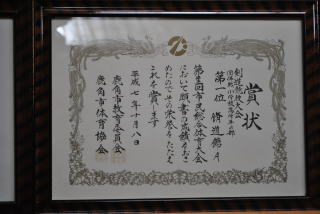 賞状
剣道競技会
団体戦小学校高学年の部
第一位
第五回市民総合体育大会
において頭書の成績をおさ
めたのでその栄誉をたたえ
これを賞します
平成七年十月八日
鹿角市教育委員会
鹿角市体育協会